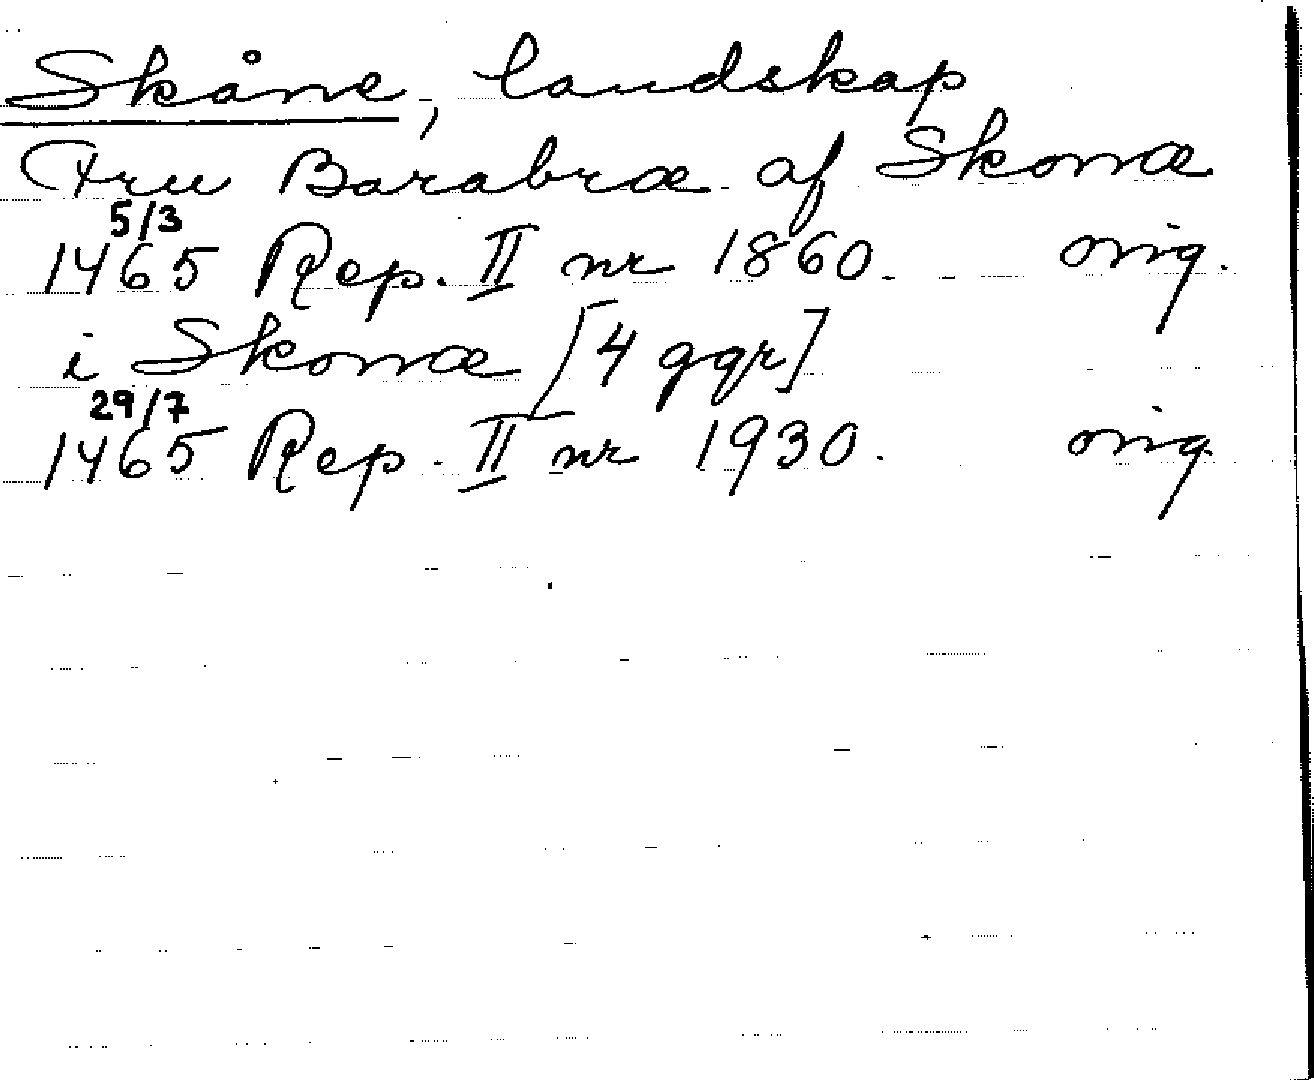 Skåne, landskap
Fru Barabræ af Skonæ
5/3
1465 Rep. II nr 1860. orig.
i Skonæ [4 ggr]
29/7
1465 Rep. II nr 1930. orig.